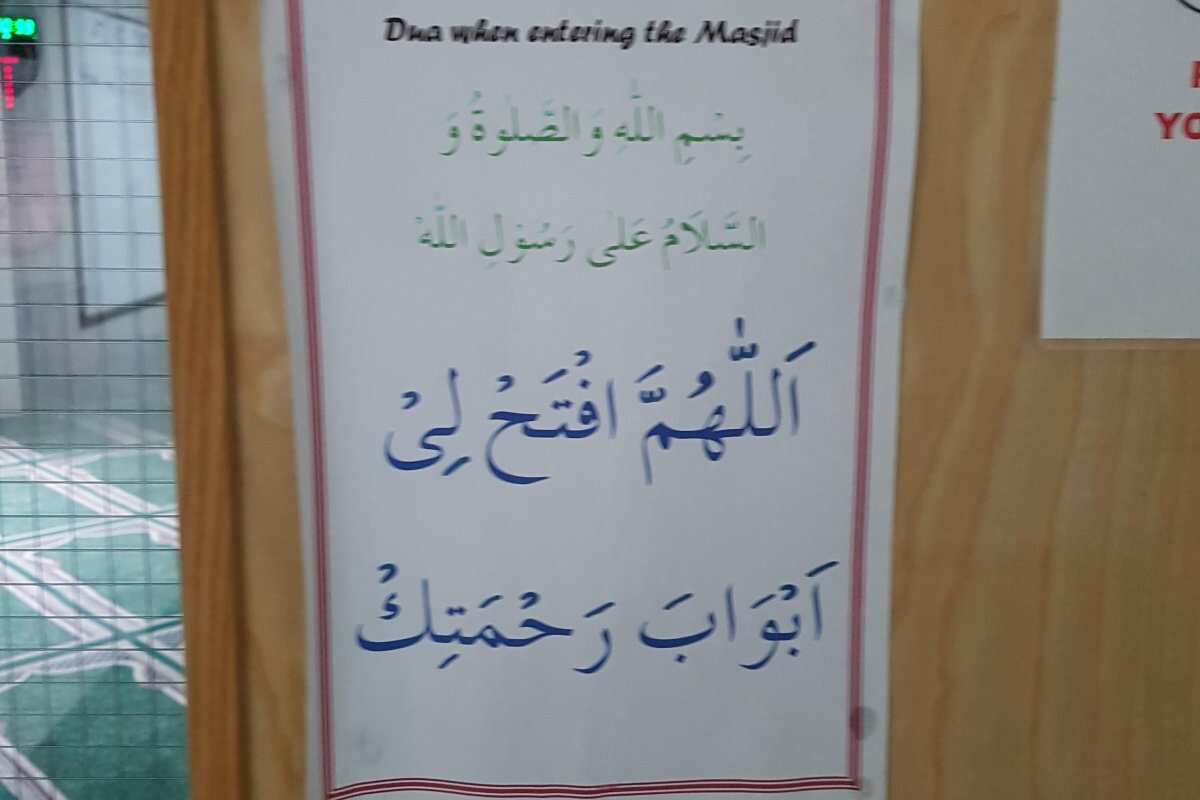 Dua when entering the Masjid
بِسْمِ اللّٰهِ وَالصَّلٰوةُ وَ
السَّلَامُ عَلٰى رَسُوْلِ اللّٰهْ
اَللّٰهُمَّ افْتَحْ لِىْ
اَبْوَابَ رَحْمَتِكْ